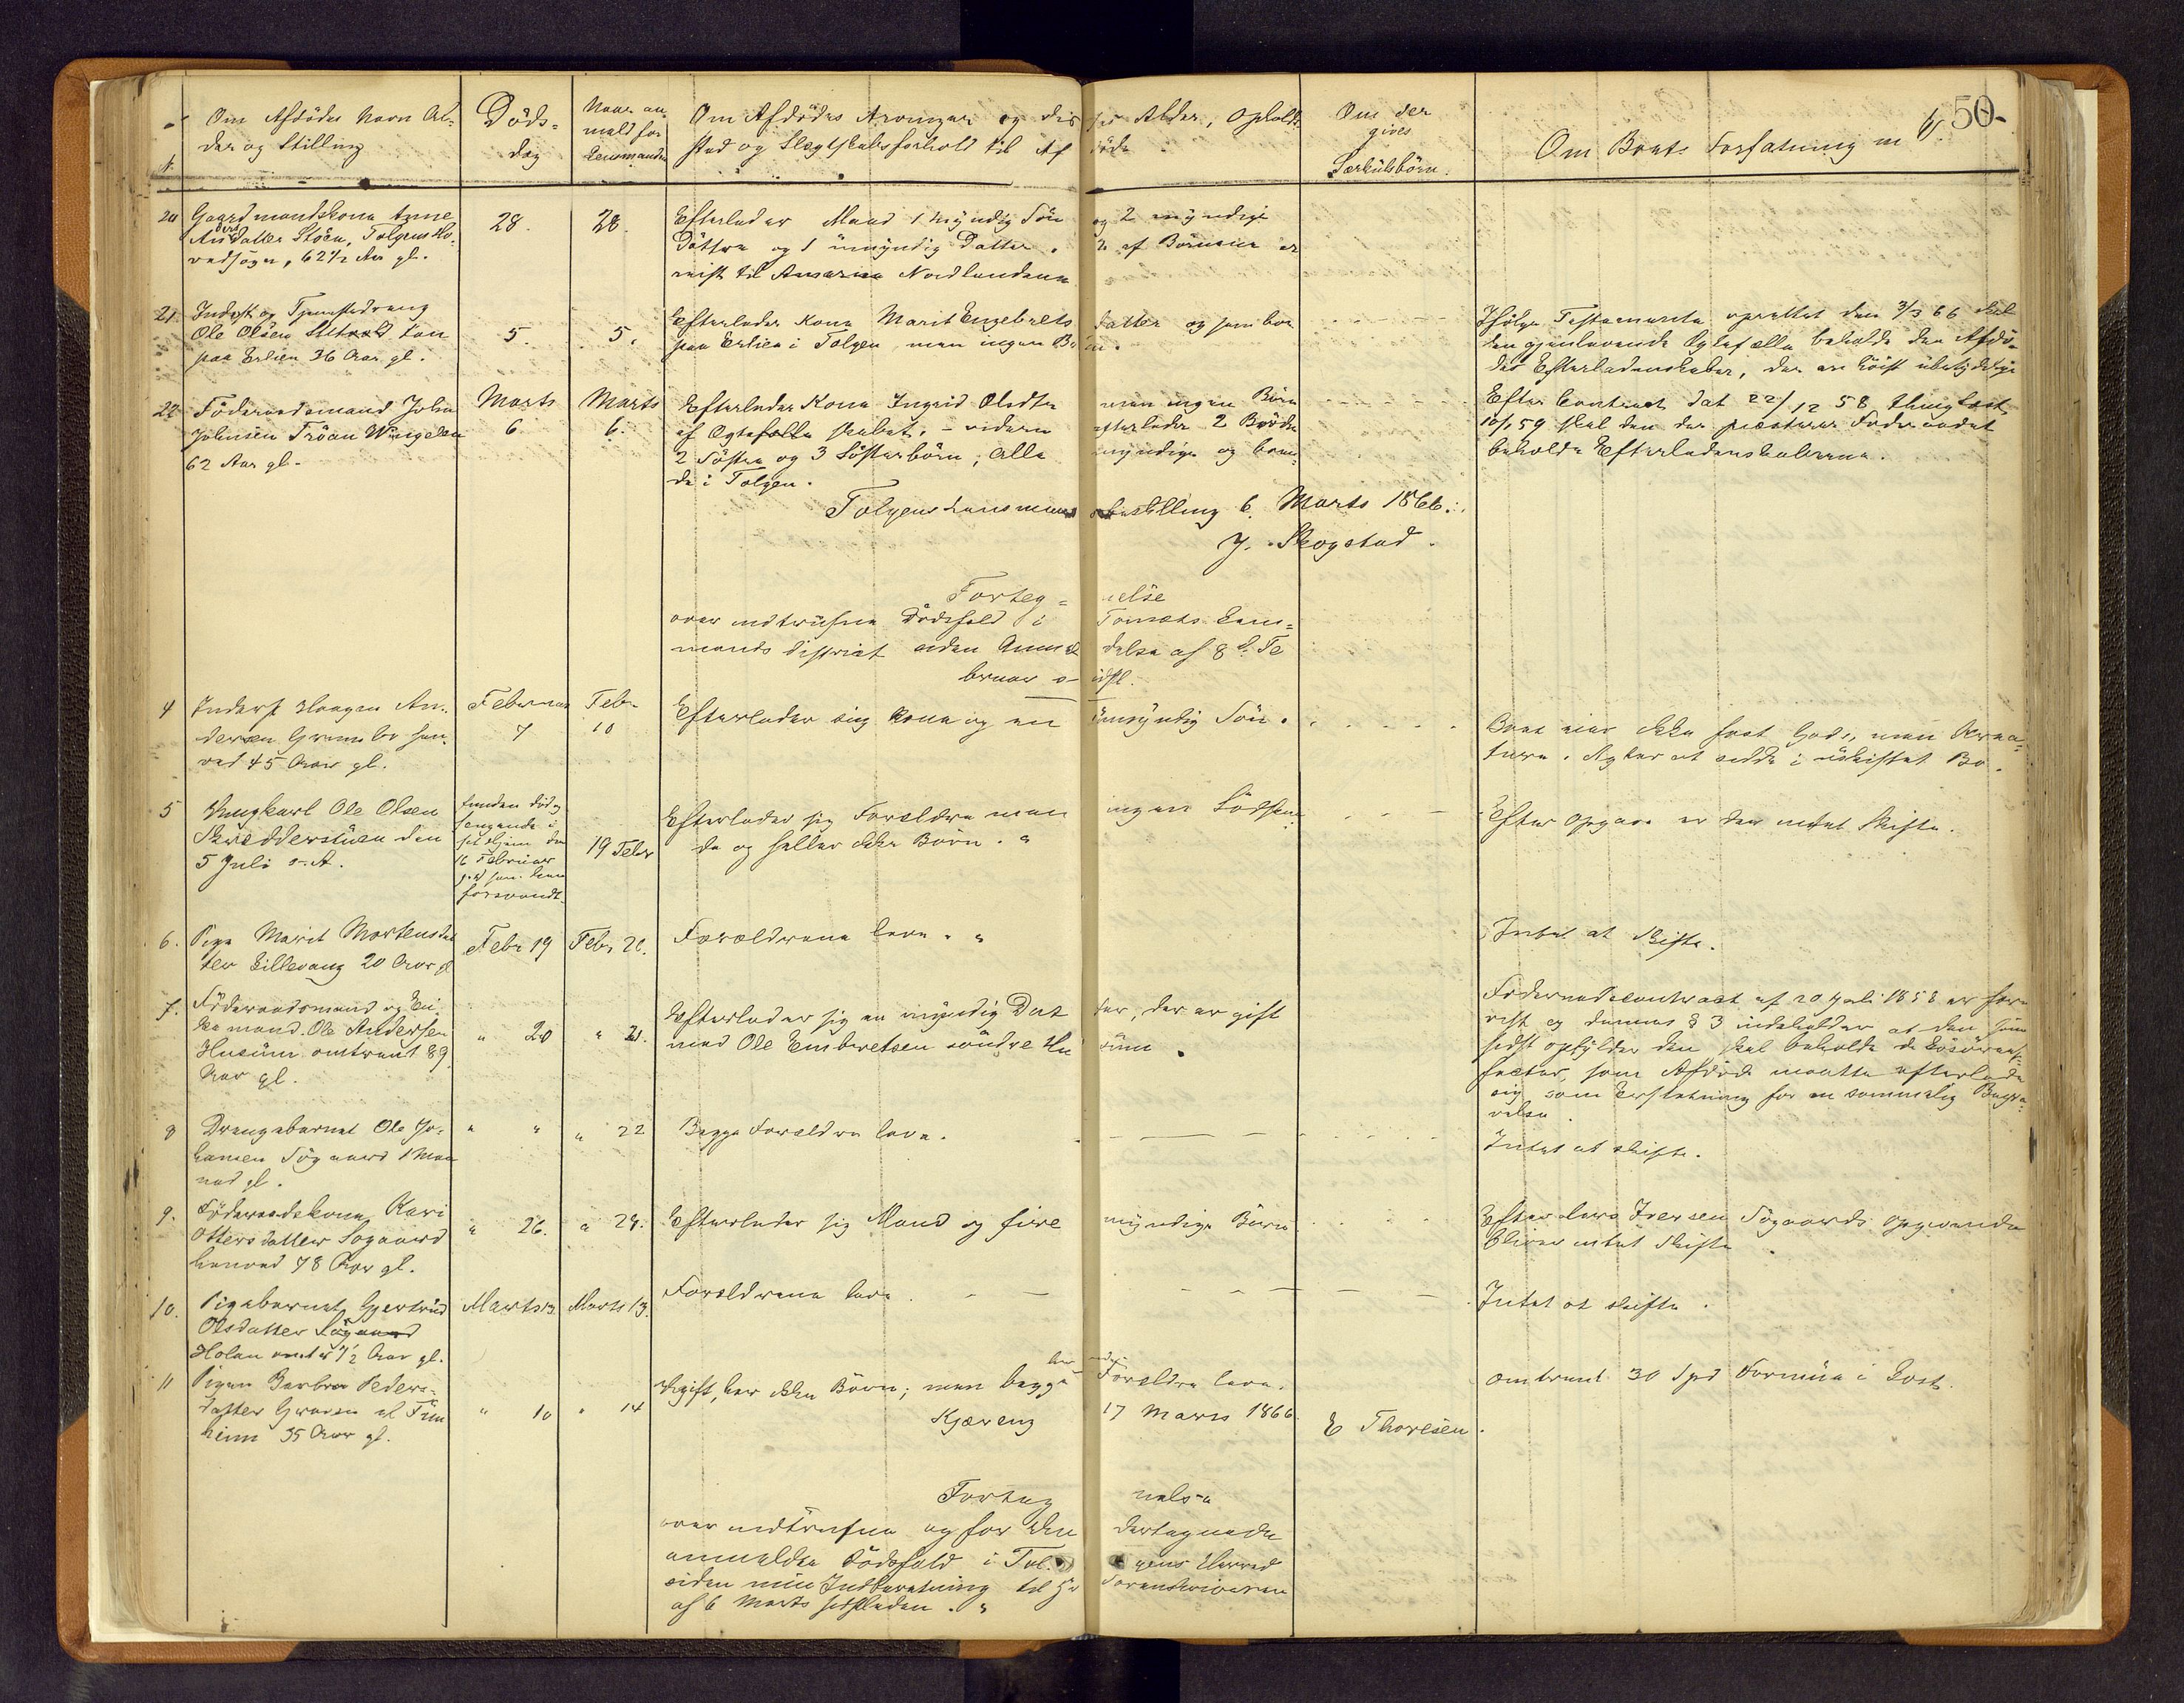 50.
Om Afdödes Navn Al-
der og Stilling
Döds-
dag
Naar an-
meldt for
Lensmanden
Om Afdödes Arvinger og dis ses Alder, Opholds
sted og Slegtskabsforhold til Af döde.
Om der
gives
Særkulsbörn.
Om Boets Forfatning m v.
20 Gaardmandskone Anne
Andersdatter Stöen, Tolgens Ho-
vedsogn, 62 1/2 Aar gl.
28.
28.
Efterlader Mand 1 myndig Sön og 2 myndige
Döttre og 1 umyndig Datter. 2 af Börnene er
reist til Nordlandene
21. Inderst og Tjenestedreng
Ole Olsen
paa Erlien 36 Aar gl.
5.
5.
Efterlader Kone Marit Engebrets datter og som bor
paa Erlien i Tolgen, men ingen Bö rn.
Ifölge Testamente oprettet den 3/3 66 skal
den gjenlevende Ægtefælle beholde den Afdö-
des Efterladenskaber, der ere höist ubetydelige
22 Föderaadsmand John
Johnsen Tröan Wingelen
62 Aar gl.
Marts
6.
Marts
6.
Efterlader Kone Ingrid Olsdtr men ingen Börn
af Ægteskabet, - videre efterlader 2 Brödre
2 Söstre og 3 Sösterbörn, alle myndige og boen-
de i Tolgen.
Efter Contract dat 22/12 58 thinglæst
10/1 59 skal den der præsterer Föderaadet
beholde Efterladenskaberne.
Tolgens Lensmands bestilling 6. Marts 1866.
J. Skogstad.
Forteg= nelse
over indtrufne Dödsfald i Tonsets Lens=
mands District siden Anmel delse af 8d. Fe
bruar sidstl.
4 Inderst Haagen An-
dersen Grimsbo
ved 45 Aar gl.
Februar
7
Febr
10
Efterlader sig Kone og en umyndig Sön.
Boet eier ikke fast Gods, men Krea-
turer. Agter at sidde i uskiftet Bo.
5 Ungkarl Ole Olsen
Skredderstuen den
5 Juli s. A.
funden död
hengende i
sit Hjem den
16 Februar
forsvandt.
19 Febr
Efterlader sig Forældre men ingen Södsken-
de og heller ikke Börn.
Efter Opgave er der intet Skifte.
6. Pige Marit Mortensdat
ter Lillevang 20 Aar gl
Febr 19
Febr 20.
Forældrene leve.
Intet at skifte.
7. Föderaadsmand og En-
kemand Ole Andersen
Husum omtrent 89
Aar gl.
" 20
" 21.
Efterlader sig en myndig Dat ter, der er gift
med Ole Embretsen söndre Hu sum.
Föderaadscontract af 20 Juli 1858 er fore
vist og dennes § 3 indeholder at den som
sidst opfylder den skal beholde de Lösöreef-
fecter, som Afdöde maatte efterlade
sig som Erstatning for en sömmelig Begra-
velse.
8 Drengebarnet Ole Jo-
hansen Sögaard 1 Maa
ned gl.
" "
" 22
Begge Forældre leve.
Intet at skifte.
9. Föderaadskone Kari
Ottersdatter Sögaard
78 Aar gl.
" 26.
" 28.
Efterlader sig Mand og fire myndige Börn
Efter Lars Iversen Sögaards Opgivende
bliver intet Skifte
10. Pigebarnet Gjertrud
Olsdatter Sögaard
Holen 1/2 Aar gl.
Marts 13.
Marts 13.
Forældrene leve
Intet at skifte.
11 Pigen Barbro Peders-
datter 35 Aar gl.
" 10
" 14
Ugift, har ikke Börn; men begge Forældre leve.
omtrent 30 Spd Formue i Lost.
Kjæreng 17 Marts 1866
E Thoresen.
Forteg nelse
over indtrufne og for Un dertegnede
anmeldte Dödsfald i Tol gens Herred
siden min Indberetning til Hr Sorenskriveren
af 6 Marts sidstleden.